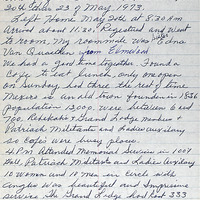 20th thru 23 of May 1973.
Left Home May 20th at 8:30 A.M
Arrived at 11:20, Registered and went
to room. My roommate was Edna
Van from Elmwood
We had a good time together. Found a
Cafe to eat lunch, only one open
on Sunday, had three the rest of time
Mexia is an old town founded in 1836
population 12000. were between 6 and
700. Rebekahs & Grand Lodge members &
Patriach Militants and Ladies Auxilary
so Cafe's were busy place
4 P.M Attended Memorial Service in IOOF
Hall, Patriach Militants and Ladies Auxilary
10 women and 10 men in circle with
was beautiful and Impressive
service. The Grand Lodge had lost 333